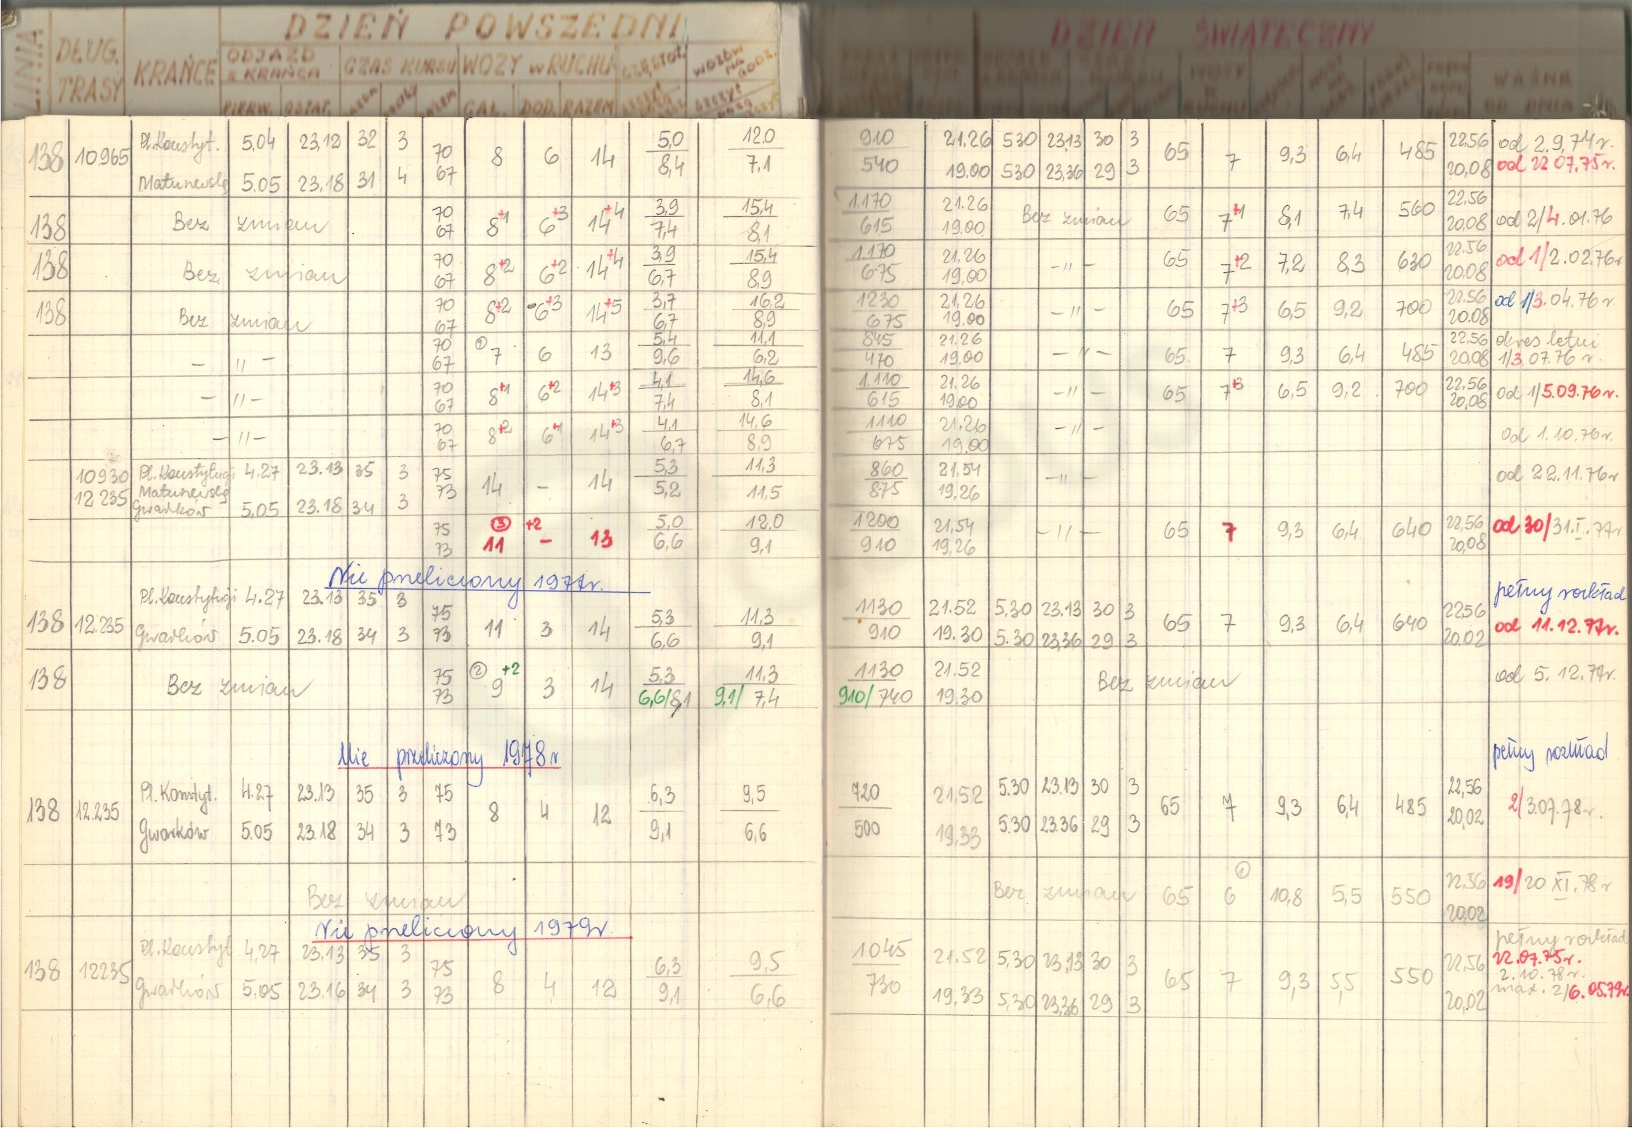 DZIEŃ POWSZEDNI DZIEŃ ŚWIĄTECZNY
LINIA DŁUG. TRASY KRAŃCE ODJAZD Z KRAŃCA CZAS KURSU WOZY W RUCHU
PIERW. OSTAT. DOD. RAZEM WAŻNA OD DNIA
138 10965 Pl. Konstyt. 5,04 23,12 32 3 70 8 6 14 5,0 12,0 910 21.26 530 23,13 30 3 65 7 9,3 6,4 485 22.56 od 2.9.74r.
5.05 23.18 31 4 67 8,4 7,1 540 19.00 530 23,36 29 3 20,08 od 22 07.75r.
138 Bez zmian 70 8+1 6+3 14+4 3,9 15,4 1.170 21.26 Bez zmian 65 7+1 8,1 7,4 560 22,56 od 2/4.01.76
67 7,4 8,1 615 19.00 20.08
138 Bez zmian 70 8+2 6+2 14+4 3,9 15,4 1.170 21,26 -"- 65 7+2 7,2 8,3 630 22.56 od 1/2.02.76r
67 6,7 8,9 675 19,00 20.08
138 Bez zmian 70 8+2 6+3 14+5 3,7 16,2 1230 21,26 -"- 65 7+3 6,5 9,2 700 22.56 od 1/3.04.76r.
67 6,7 8,9 675 19.00 20.08
-"- 70 ① 7 6 13 5,4 11,1 845 21.26 -"- 65 7 9,3 6,4 485 22,56 okres letni
67 9,6 6,2 470 19,00 20,08 1/3.07.76 r.
-"- 70 8+1 6+2 14+3 4,1 14,6 1.110 21,26 -"- 65 7+3 6,5 9,2 700 22,56 od 1/5.09.76r.
67 7,4 8,1 615 19.00 20,08
-"- 70 8+2 6+1 14+3 4,1 14,6 1110 21,26 -"- od 1.10.76r.
67 6,7 8,9 675 19,00
10930 Pl. Konstytucji 4.27 23.13 35 3 75 14 - 14 5,3 11,3 860 21,54 -"- od 22.11.76r.
12235 Gwarków 5,05 23.18 34 3 73 5,2 11,5 875 19,26
75 ③ 11 +2 - 13 5,0 12,0 1200 21,54 -"- 65 7 9,3 6,4 640 22,56 od 30/31.I.77r.
73 6,6 9,1 910 19,26 20,08
Nie przeliczony 1977r. pełny rozkład
138 12.235 Pl. Konstytucji 4.27 23.13 35 3 75 11 3 14 5,3 11,3 1130 21.52 5.30 23.13 30 3 65 7 9,3 6,4 640 22.56 od 11.12.77r.
Gwarków 5.05 23.18 34 3 73 6,6 9,1 910 19.30 5.30 23,36 29 3 20.02
138 Bez zmian 75 ② 9 +2 3 14 5.3 11,3 1130 21.52 Bez zmian od 5.12.77r.
73 6,6/8,1 9,1/ 7,4 910/740 19.30
Nie przeliczony 1978r pełny rozkład
138 12.235 Pl. Konstyt. 4.27 23.13 35 3 75 8 4 12 6,3 9,5 720 21,52 5.30 23.13 30 3 65 7 9,3 6,4 485 22,56 2/3.07.78r.
Gwarków 5.05 23.18 34 3 73 9,1 6,6 500 19,33 5.30 23.36 29 3 20,02
Bez zmian Bez zmian 65 ① 6 10,8 5,5 550 22,56 19/20 XI.78r
20,02
Nie przeliczony 1979r. pełny rozkład
138 12235 Pl. Konstyt 4,27 23,13 35 3 75 8 4 12 6,3 9,5 1045 21.52 5,30 23,13 30 3 65 7 9,3 5,5 550 22,56 22.07.75r.
2.10.78r.
Gwarków 5,05 23.16 34 3 73 9,1 6,6 730 19,33 5,30 23,36 29 3 20,02 2/6.05.79r.